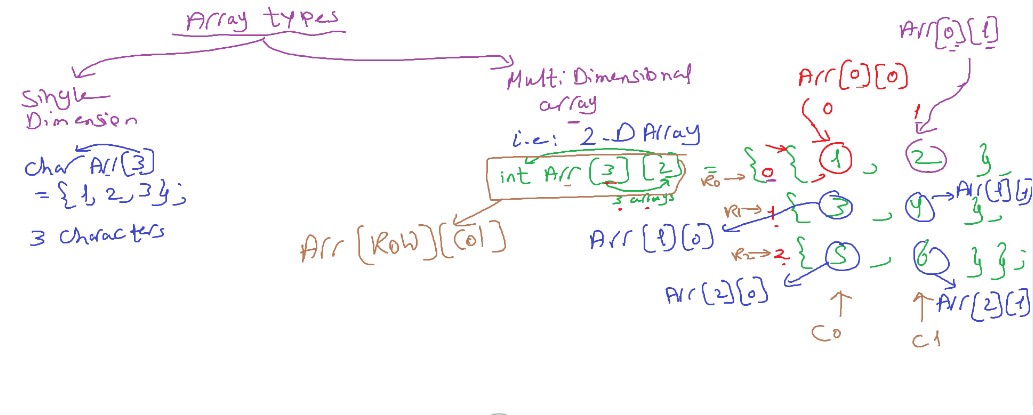 Array types
Single
Dimension
char Arr[3]
= {1, 2, 3};
3 characters
Multi Dimensional
array
i.e: 2-D Array
int Arr [3] [2] =
3 arrays
Arr [Row][Col]
Arr[0][1]
Arr[0][0]
0 1
R0 → 0 { { 1 , 2 },
R1 → 1 { 3 , 4 }, Arr[1][1]
Arr [1][0]
R2 → 2 { 5 , 6 } };
Arr[2][0]
Arr[2][1]
C0 C1